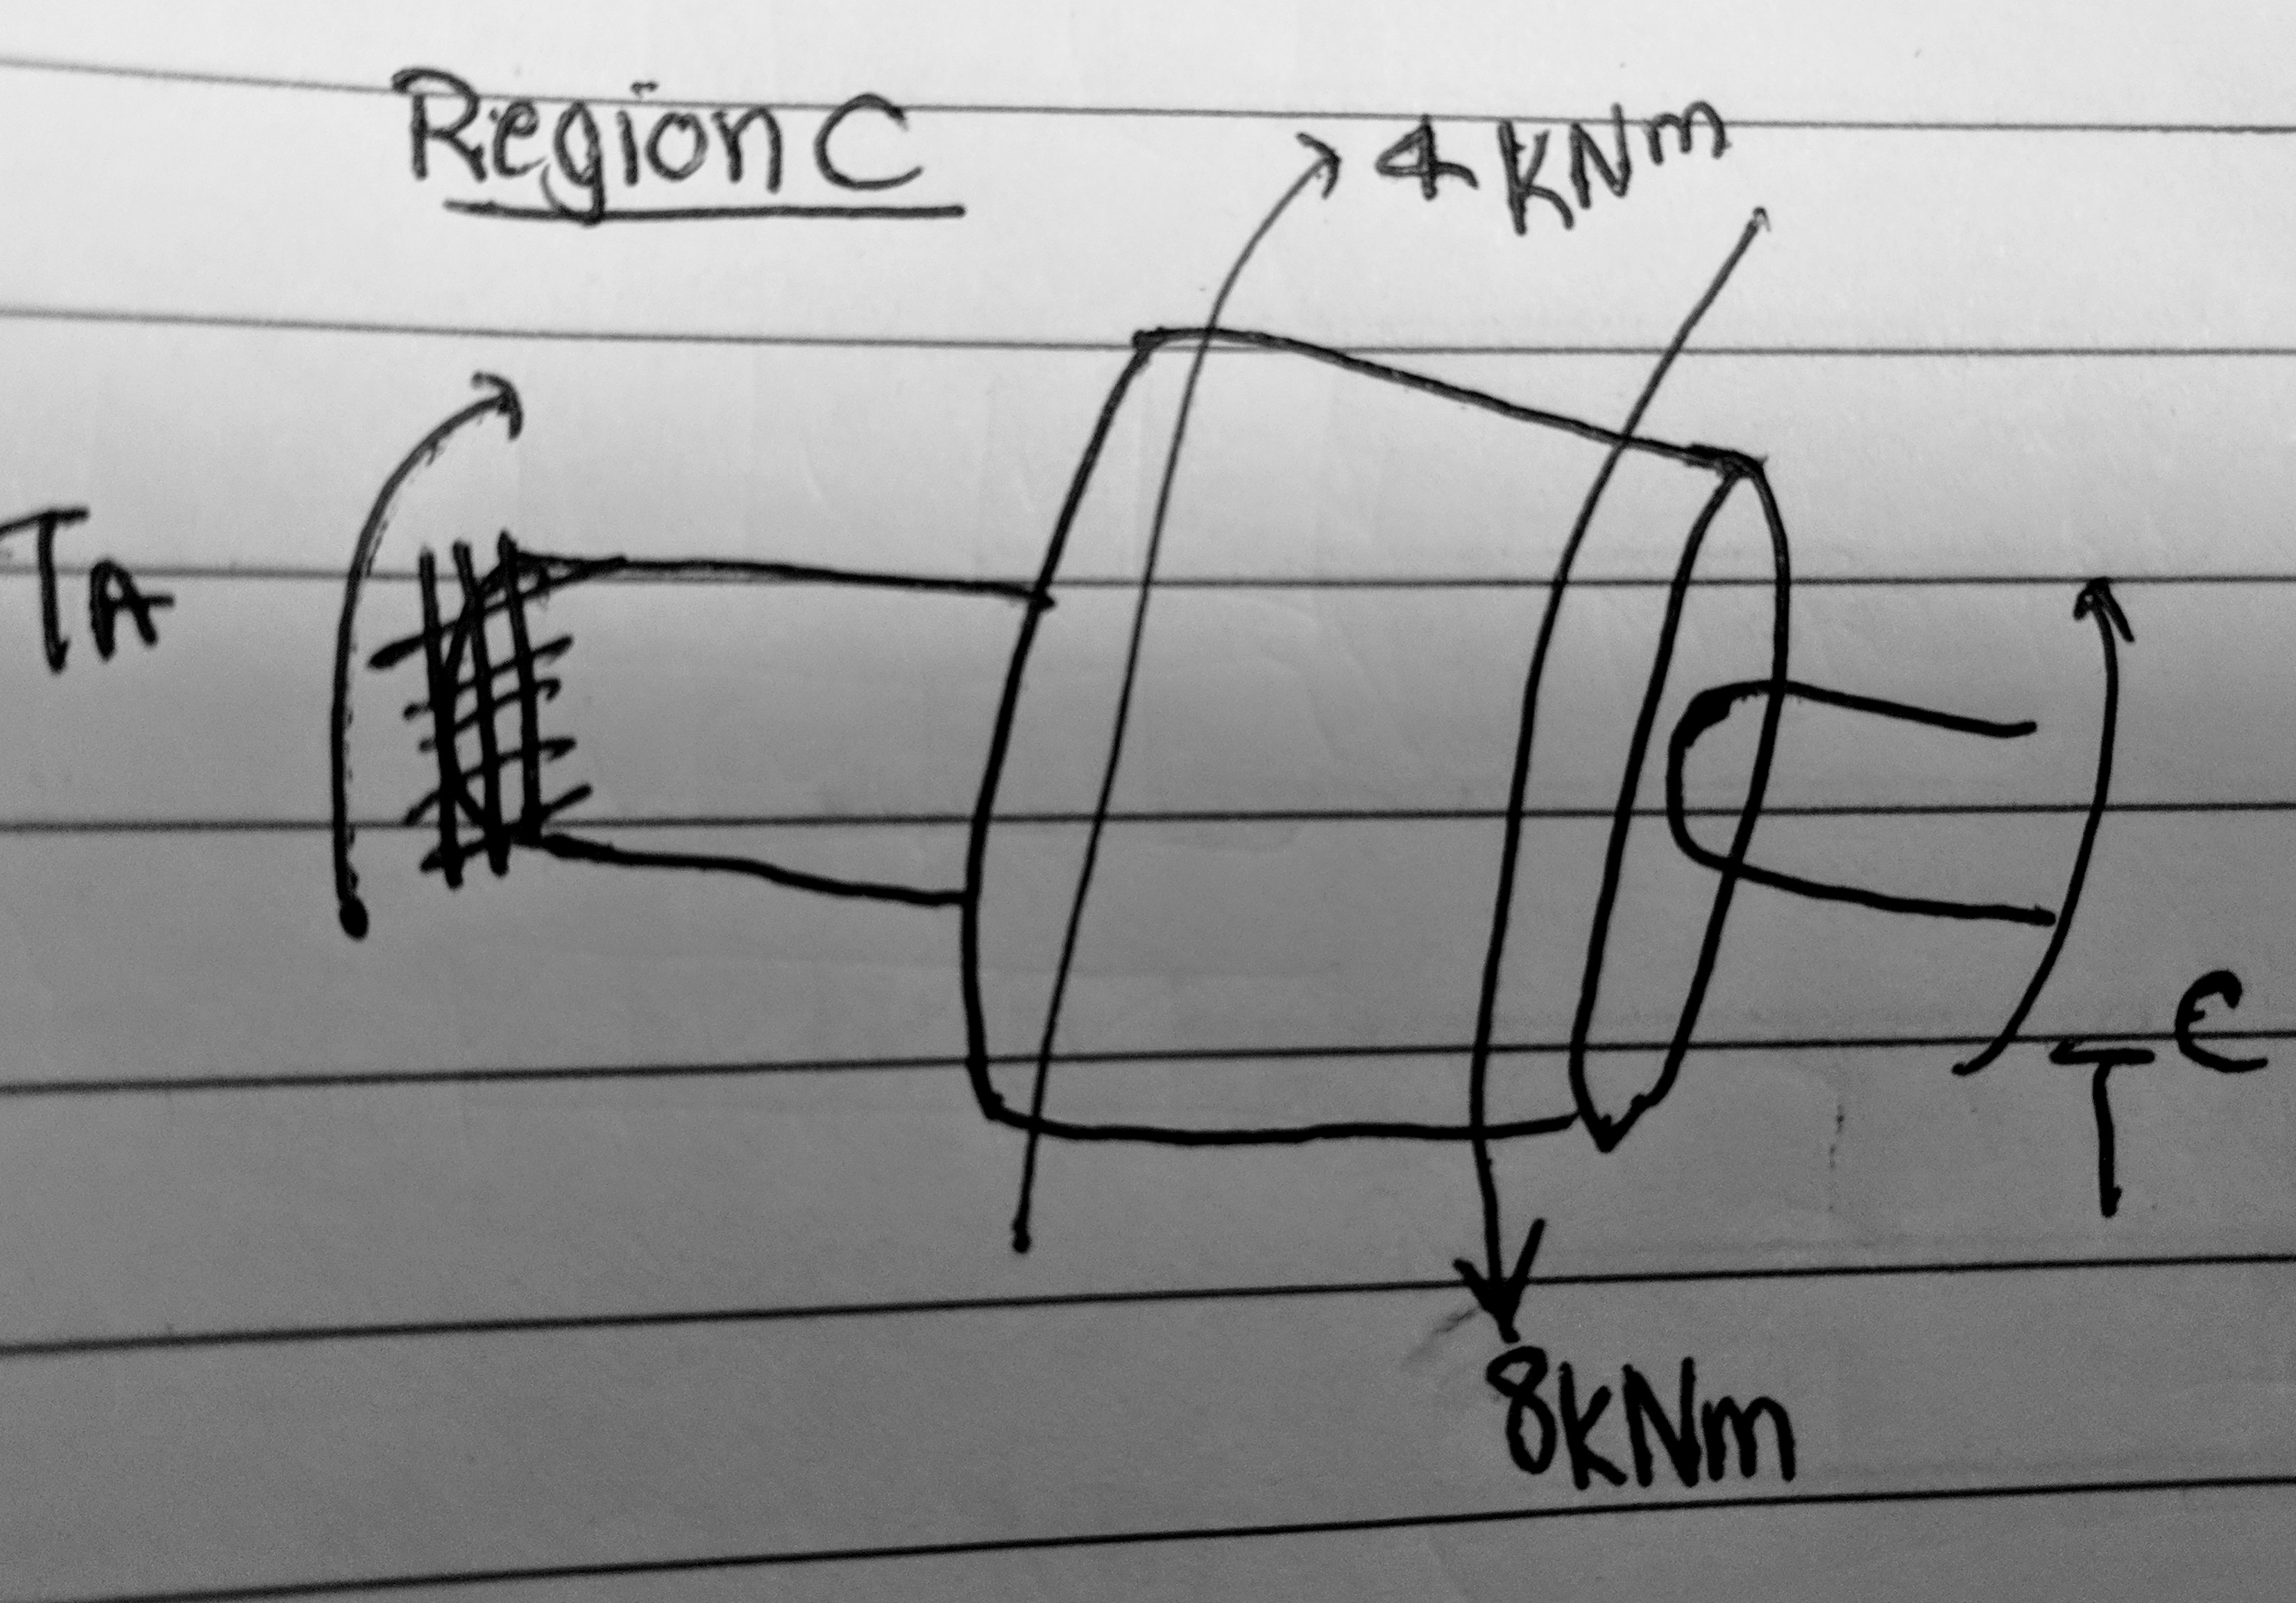 Region C
4 KNm
TA
TC
8kNm